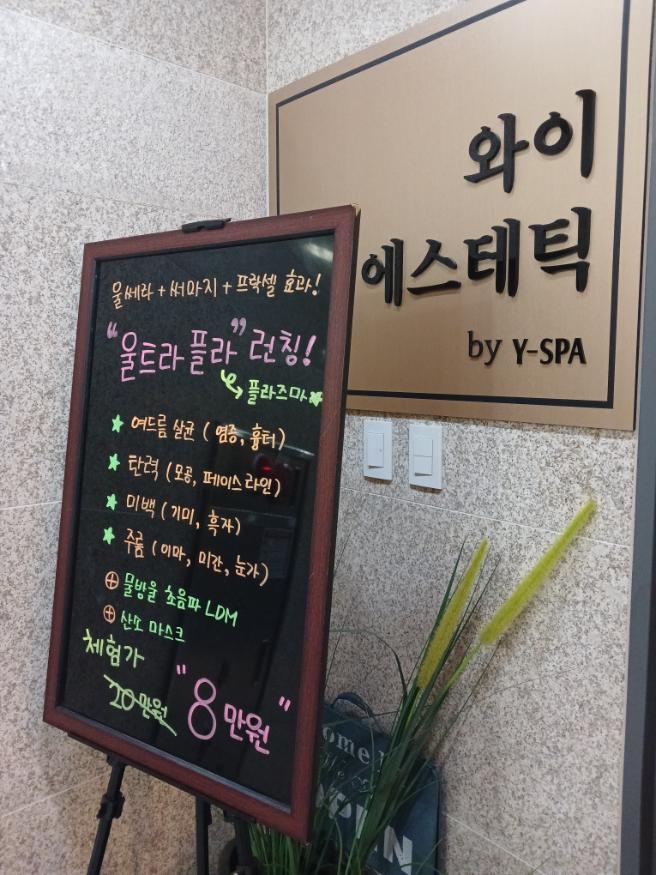 와이
에스테틱
by Y-SPA
울쎄라 + 써마지 + 프락셀 효과!
"울트라 플라" 런칭!
플라즈마
여드름 살균 (염증, 흉터)
탄력 (모공, 페이스라인)
미백 (기미, 흑자)
주름 (이마, 미간, 눈가)
물방울 초음파 LDM
산소 마스크
체험가
20만원 "8만원"